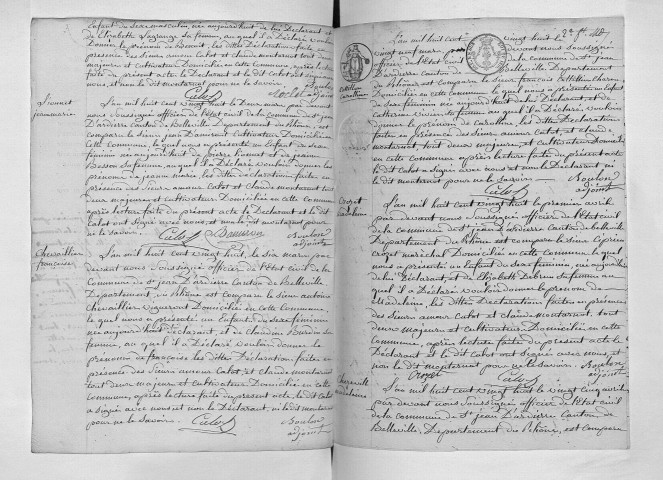 Enfant de sexe masculin, né aujourd'huit de lui Déclarant et
de Elizabeth Lagrange sa femme, au quel il a Déclaré vouloir
Donner le prénom de Benoit, les dittes Déclaration faite en
présence des Sieurs amour Calot et claude montarnat tout deux
majeurs et cultivateur Domiciliés en cette commune, après lecture
faite du présent acte le Déclarant et le dit Calot ont signés avec
nous, et non le dit montarnat pour ne le savoir. Boulon
Calot adjoint
Lionnet
jeanne marie
L'an mil huit cent vingt huit le Deux mars par
devant nous Soussigné officier de l'État civil de la Commune de St
jean D'ardières Canton de Belleville Département du Rhône, est
comparu le Sieur jean Dameron Cultivateur Domicilié en
cette Commune, le quel nous a présenté un Enfant de sexe
féminin né aujourd'huit de
Besson sa femme, au quel il a Déclaré vouloir donner les
prénoms de jeanne marie, les dittes Déclaration faite en
présence des Sieurs amour Calot et claude montarnat tout
deux majeurs et cultivateur Domiciliés en cette commune
après lecture faite du présent acte le Déclarant et le dit
Calot ont signés avec nous, et non le dit montarnat pour
ne le savoir. Calot Dameron Boulon
adjoint
Chevallier
françoise
L'an mil huit cent vingt huit, le six mars par
devant nous Soussigné officier de l'État civil de la
Commune de St jean D'ardières Canton de Belleville
Département du Rhône est comparu le Sieur antoine
Chevallier vigneront Domicilié en cette Commune,
le quel nous a présenté un Enfant de sexe féminin
née aujourd'huit de lui Déclarant, et de Claudine Burdin sa
femme, au quel il a Déclaré vouloir donner le
prénom de françoise les dittes Déclaration faite en
présence des Sieurs amour Calot, et claude montarnat
tout deux majeurs et cultivateur Domiciliés en cette
Commune, après lecture faite du présent acte, le dit Calot
a signé avec nous et non le Déclarant, ni le dit montarnat
pour ne le savoir. Calot Boulon
adjoint
2e ft
L'an mil huit cent vingt huit le
vingt neuf mars, par devant nous Soussigné
officier de l'État civil de la Commune de St jean
D'ardières Canton de Belleville, Département
du Rhône est comparu le Sieur françois
le quel nous a présenté un Enfant
de sexe féminin née aujourd'huit de lui Déclarant, et de
Catherine sa femme, au quel il a Déclaré vouloir
donner le prénom de Caroline, les dittes Déclaration
faite en présence des Sieurs amour Calot, et claude
montarnat, tout deux majeurs, et cultivateur Domiciliés
en cette Commune, après lecture faite du présent acte
le dit Calot a signé avec nous, et non le Déclarant ni
le dit montarnat pour ne le savoir. Boulon
Calot adjoint
Crozet
Madelaine
L'an mil huit cent vingt huit le premier avril
par devant nous Soussigné officier de l'État civil
de la commune de St jean D'ardières Canton de belleville
Département du Rhône est comparu le Sieur Ciprien
crozet maréchal Domicilié en cette Commune le quel
nous a présenté un Enfant de sexe féminin née aujourd'huit
de lui Déclarant, et de Elizabeth Debrun sa femme au
quel il a Déclaré vouloir donner le prénom de
Madelaine, les dittes Déclaration faite en présence
des Sieurs amour Calot et claude montarnat, tout
deux majeurs et cultivateur Domiciliés en cette
commune, après lecture faite du présent acte le
Déclarant et le dit Calot ont signés avec nous, et
non le dit montarnat pour ne le savoir. Boulon
Crozet Calot adjoint
L'an mil huit cent vingt huit le vingt cinq avril
par devant nous Soussigné officier de l'État civil
de la commune de St jean D'ardières Canton de
Belleville, Département du Rhône, est comparu